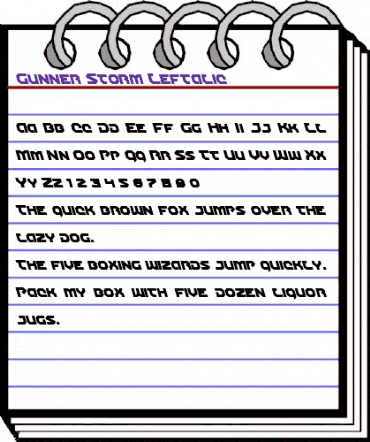 Gunner Storm Leftalic
Aa Bb Cc Dd Ee Ff Gg Hh Ii Jj Kk Ll
Mm Nn Oo Pp Qq Rr Ss Tt Uu Vv Ww Xx
Yy Zz 1 2 3 4 5 6 7 8 9 0
The quick brown fox jumps over the
lazy dog.
The five boxing wizards jump quickly.
Pack my box with five dozen liquor
jugs.